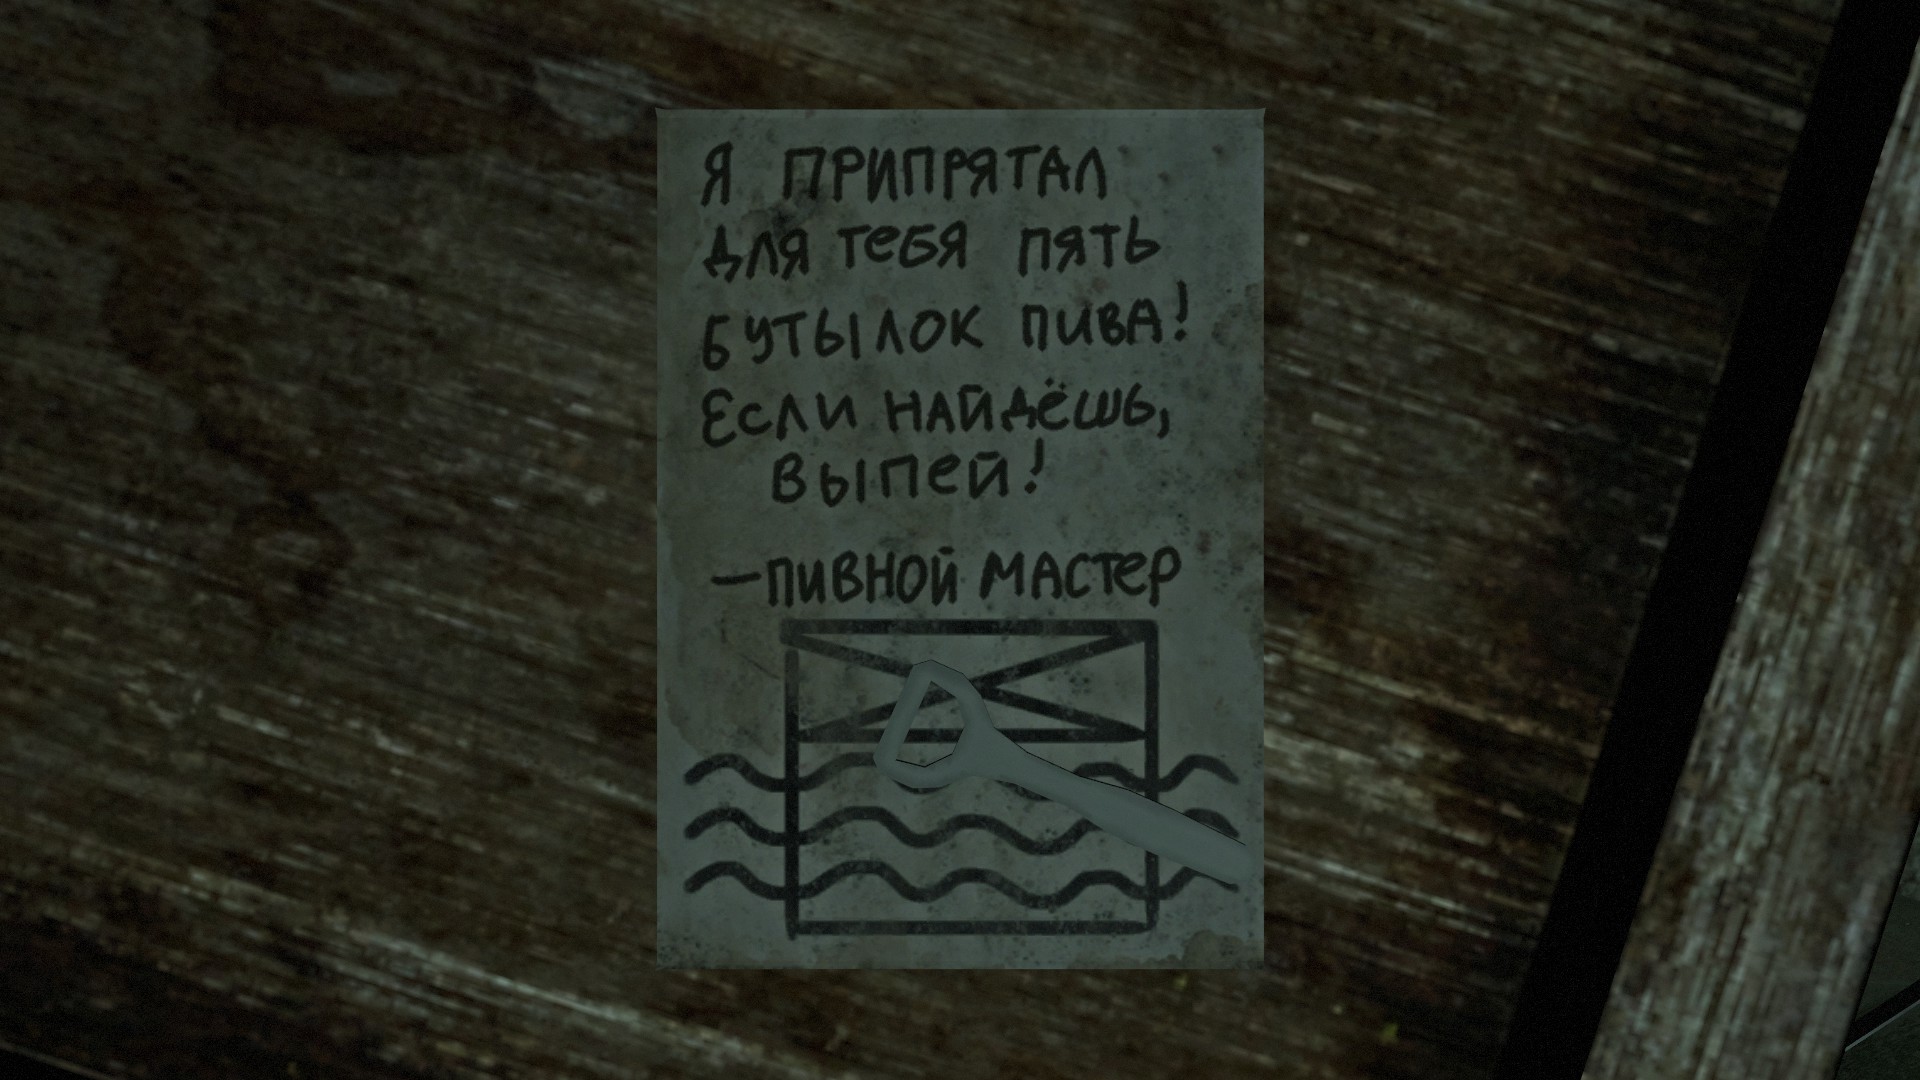 Я ПРИПРЯТАЛ
ДЛЯ ТЕБЯ ПЯТЬ
БУТЫЛОК ПИВА!
ЕСЛИ НАЙДЁШЬ,
ВЫПЕЙ!
—ПИВНОЙ МАСТЕР